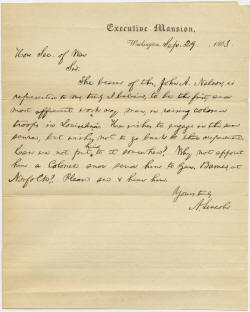 Executive Mansion,
Washington, Sep. 29, 1863
Hon. Sec. of War
Sir.
The bearer of this, John A. Nelson, is
represented to me truly I believe, to be the first, and
most efficient working man, in raising colored
troops in Louisiana. He wishes to engage in the same
service, but wishes not to go back to the
Can we not put him to it somewhere? Why not appoint
him a Colonel and send him to Gen. Barnes, at
Norfolk? Please see & hear him.
Yours truly
A. Lincoln